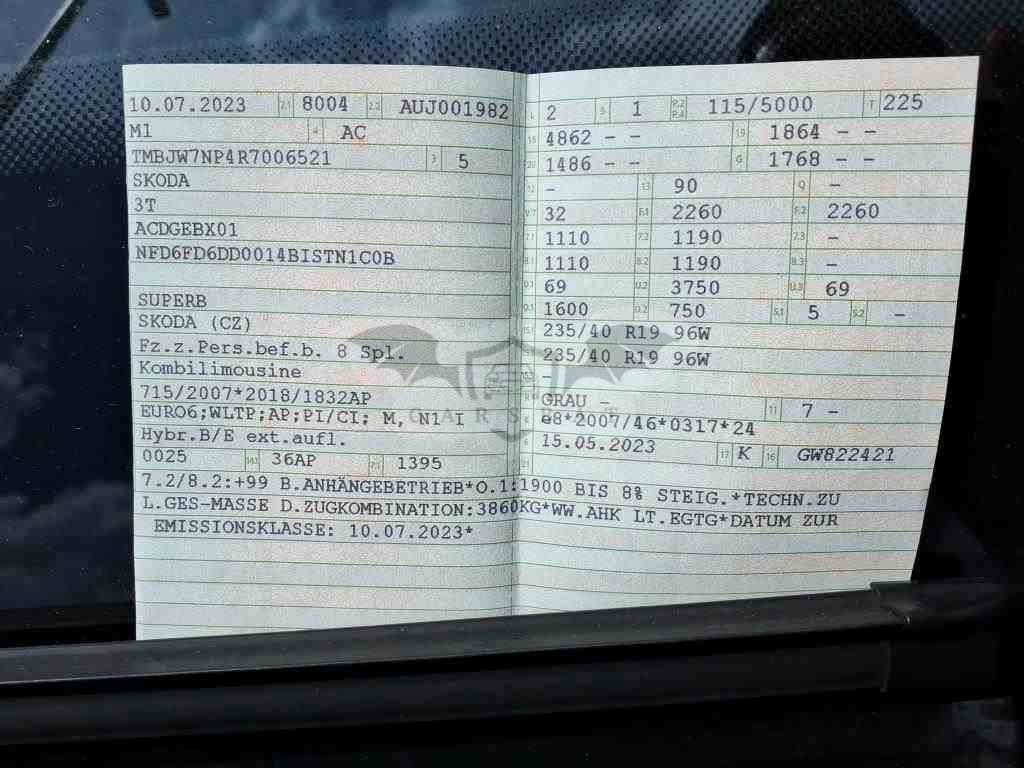 10.07.2023 2.1 8004 2.2 AUJ001982
M1 4 AC
TMBJW7NP4R7006521 3 5
SKODA
3T
ACDGEBX01
NFD6FD6DD0014BISTN1C0B
SUPERB
SKODA (CZ)
Fz.z.Pers.bef.b. 8 Spl.
Kombilimousine
715/2007*2018/1832AP
EURO6;WLTP;AP;PI/CI; M, N1 I
Hybr.B/E ext.aufl.
0025 14.1 36AP P.1 1395
L 2 9 1 P.2 P.4 115/5000 T 225
18 4862 – – 19 1864 – –
20 1486 – – G 1768 – –
12 – 13 90 Q –
V.7 32 F.1 2260 F.2 2260
7.1 1110 7.2 1190 7.3 –
8.1 1110 8.2 1190 8.3 –
U.1 69 U.2 3750 U.3 69
O.1 1600 O.2 750 S.1 5 S.2 –
15.1 235/40 R19 96W
235/40 R19 96W
–
R GRAU – 11 7 –
K e8*2007/46*0317*24
6 15.05.2023 17 K 16 GW822421
21
7.2/8.2:+99 B.ANHÄNGEBETRIEB*O.1:1900 BIS 8% STEIG.*TECHN.ZU
L.GES-MASSE D.ZUGKOMBINATION:3860KG*WW.AHK LT.EGTG*DATUM ZUR
EMISSIONSKLASSE: 10.07.2023*